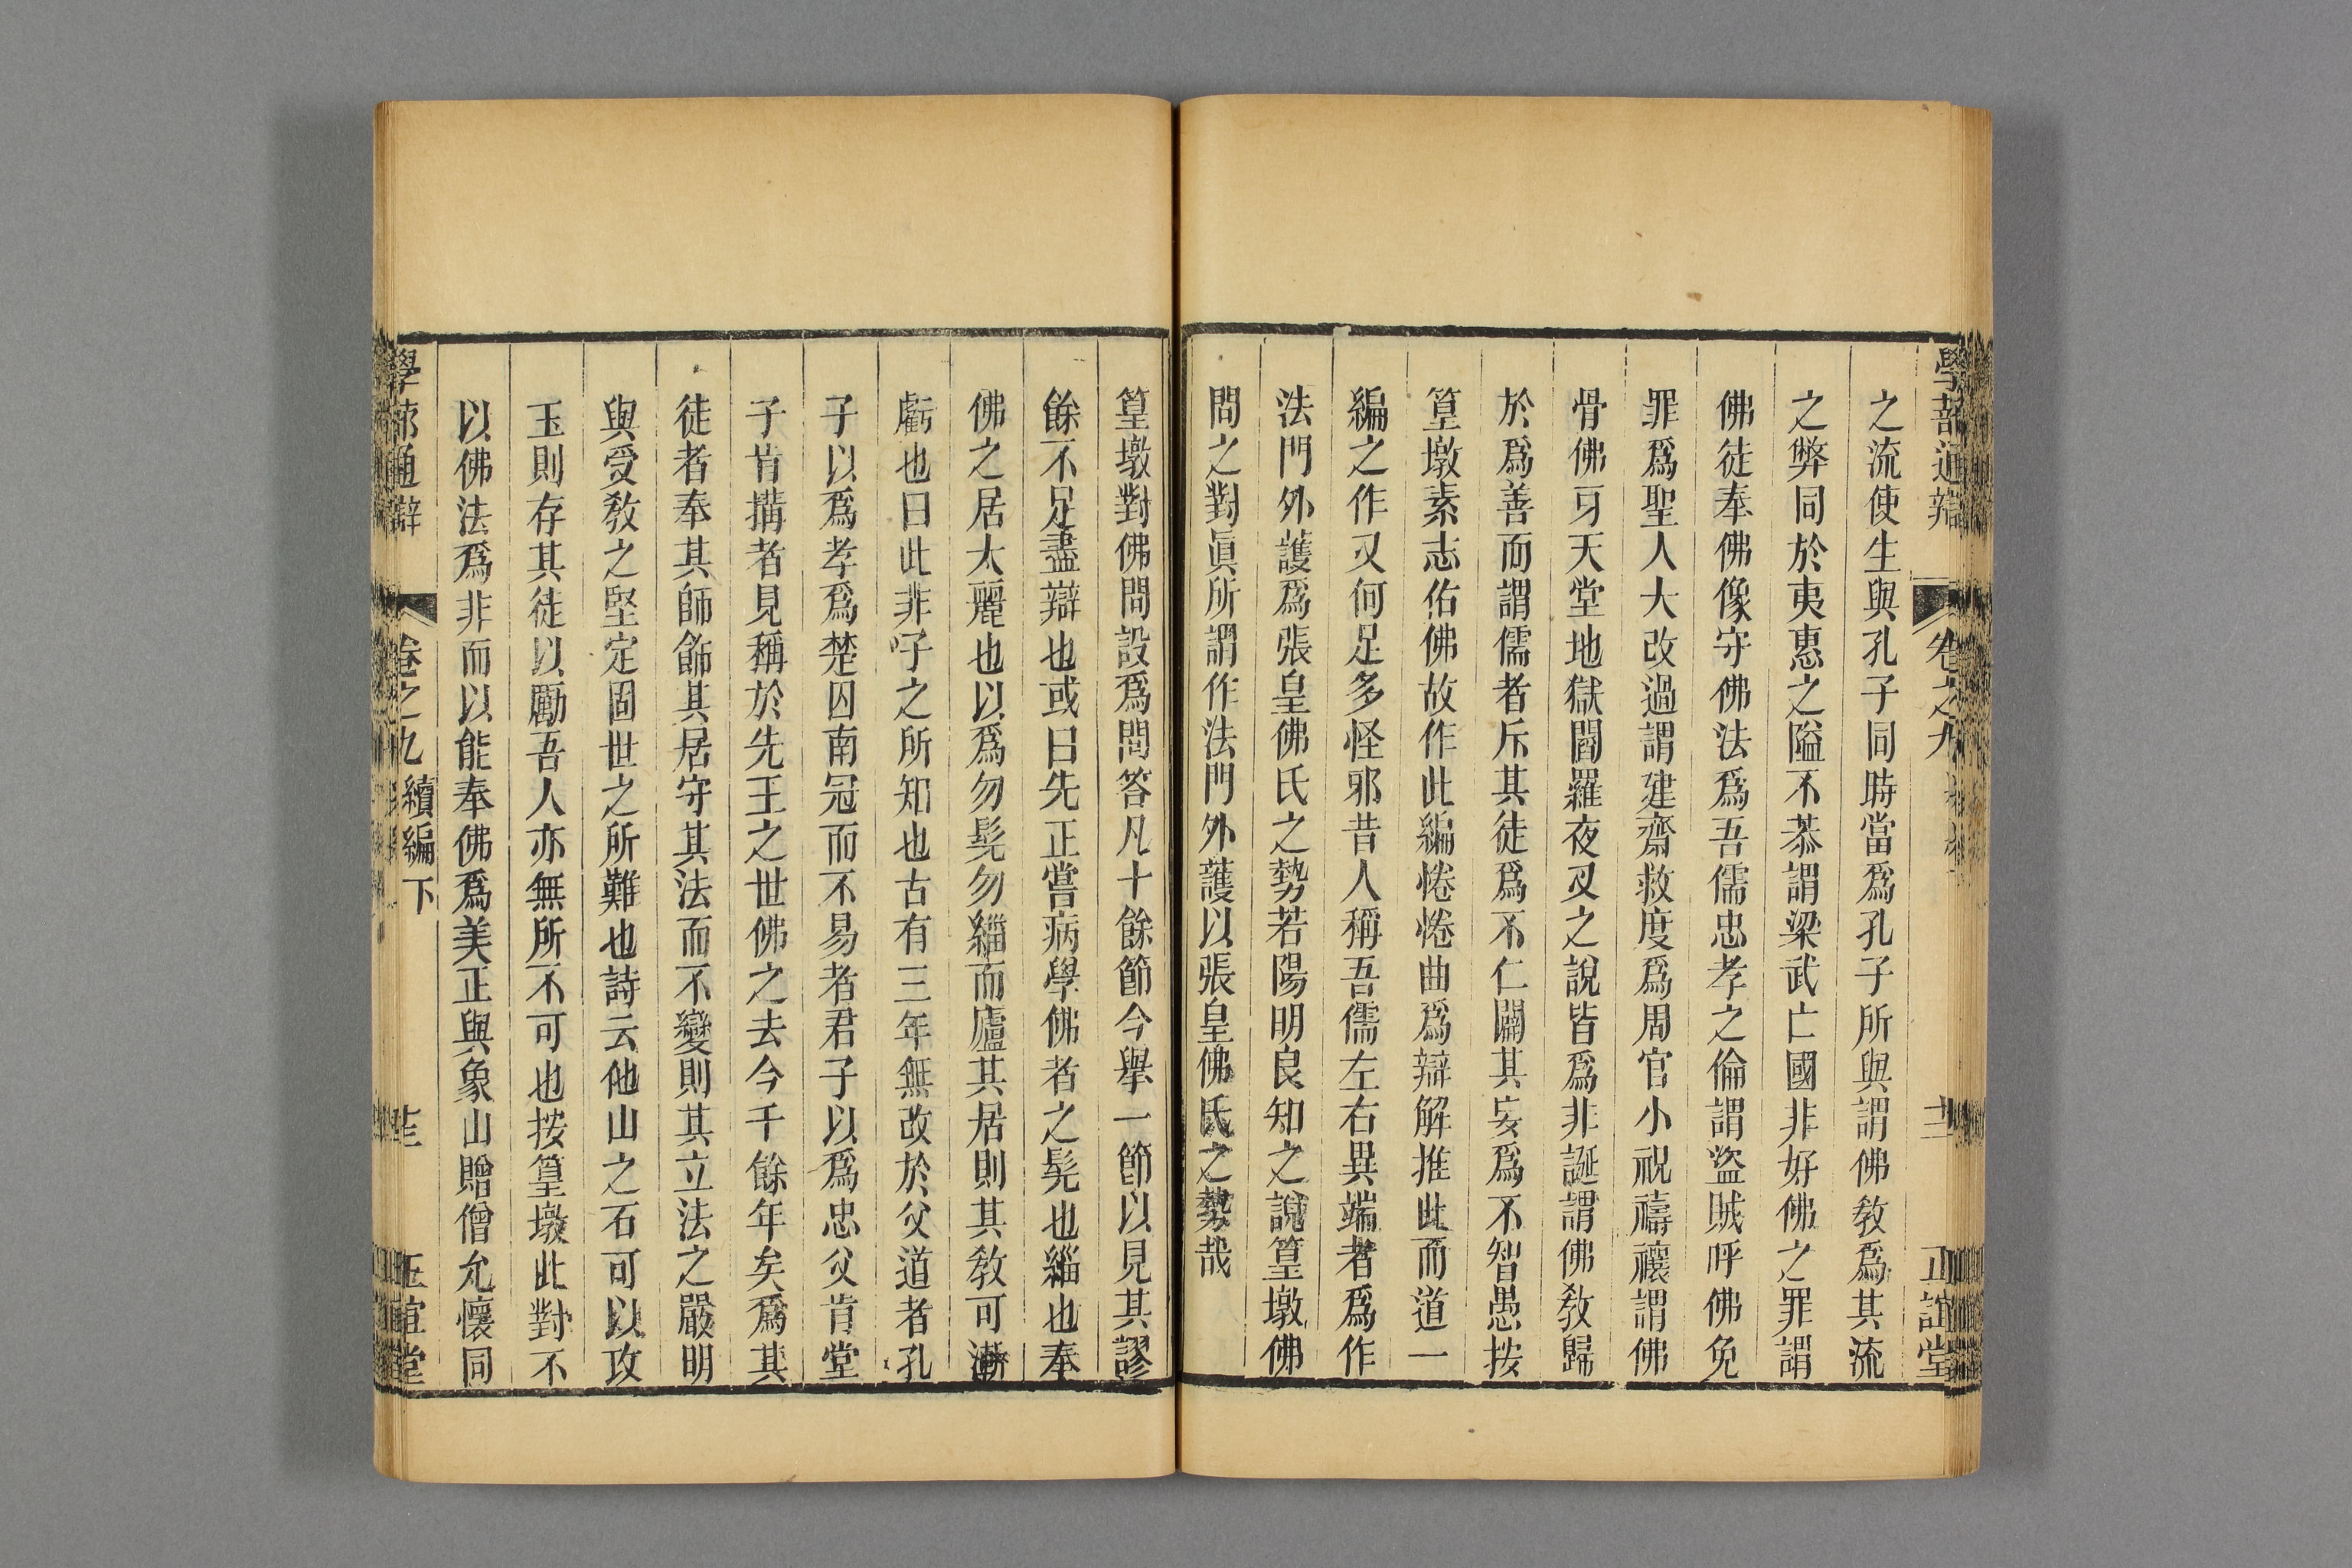 學蔀通辯 卷之九 正誼堂
之流使生與孔子同時當爲孔子所與謂佛敎爲其流
之弊同於夷惠之隘不恭謂梁武亡國非好佛之罪謂
佛徒奉佛像守佛法爲吾儒忠孝之倫謂盜賊呼佛免
罪爲聖人大改過謂建齋救度爲周官小祝禱禳謂佛
骨佛牙天堂地獄閻羅夜叉之說皆爲非誕謂佛敎歸
於爲善而謂儒者斥其徒爲不仁闢其妄爲不智愚按
篁墩素志佑佛故作此編惓惓曲爲辯解推此而道一
編之作又何足多怪邪昔人稱吾儒左右異端者爲作
法門外護爲張皇佛氏之勢若陽明良知之說篁墩佛
問之對眞所謂作法門外護以張皇佛氏之勢哉
篁墩對佛問設爲問答凡十餘節今舉一節以見其謬
餘不足盡辯也或曰先正嘗病學佛者之髡也緇也奉
佛之居太麗也以爲勿髡勿緇而廬其居則其敎可漸
虧也曰此非子之所知也古有三年無改於父道者孔
子以爲孝爲楚囚南冠而不易者君子以爲忠父肯堂
子肯搆者見稱於先王之世佛之去今千餘年矣爲其
徒者奉其師飾其居守其法而不變則其立法之嚴明
與受敎之堅定固世之所難也詩云他山之石可以攻
玉則存其徒以勵吾人亦無所不可也按篁墩此對不
以佛法爲非而以能奉佛爲美正與象山贈僧允懷同
學蔀通辯 卷之九 續編下 正誼堂